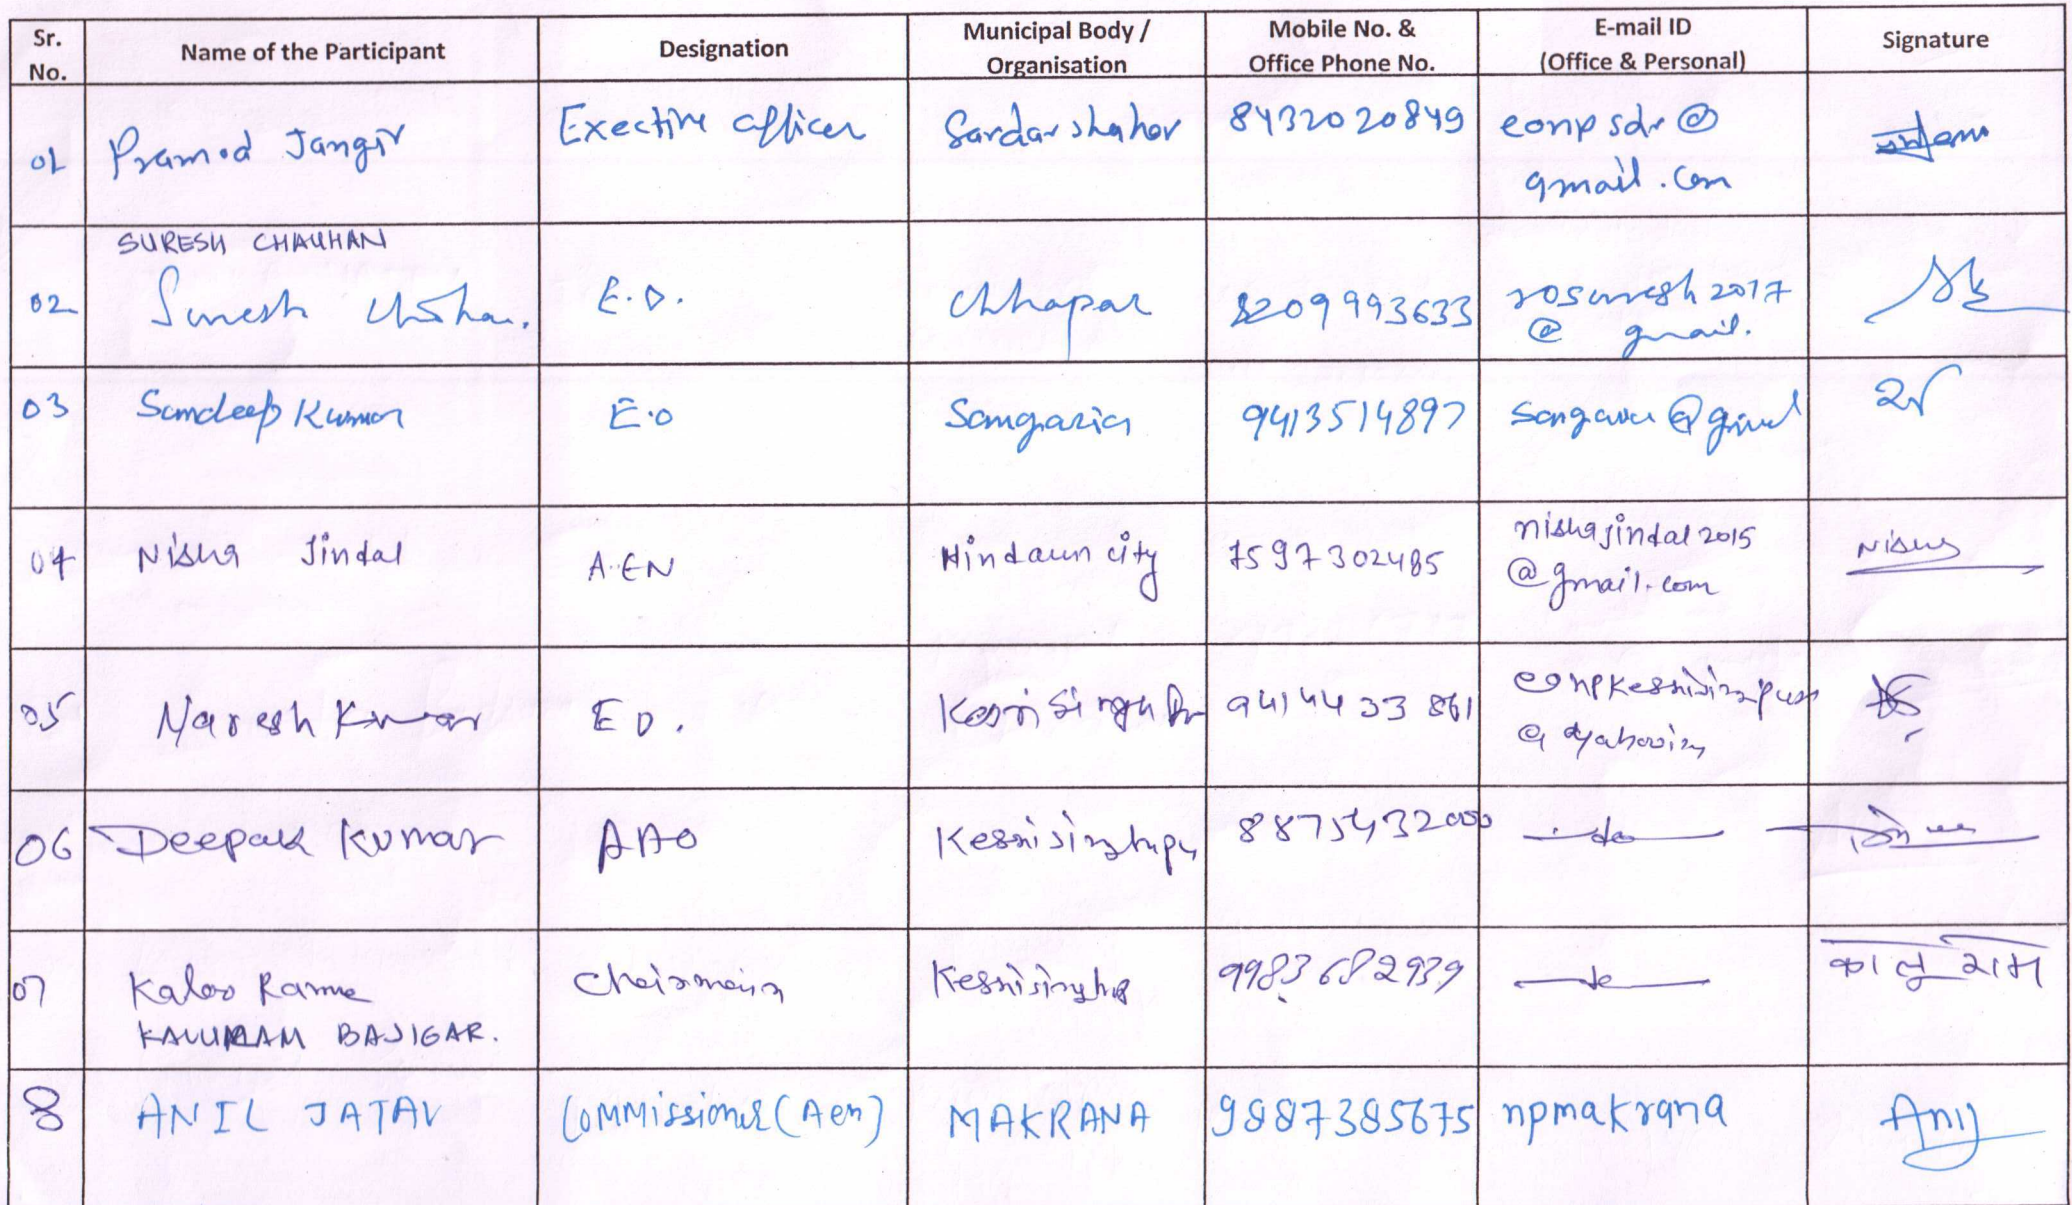 Sr. No.
Name of the Participant
Designation
Municipal Body / Organisation
Mobile No. & Office Phone No.
E-mail ID (Office & Personal)
Signature
01 Pramod Jangir Exective officer Sardarshahar 8432020849 eonpsdr@
gmail.com
SURESH CHAUHAN
02 Suresh E.O. Chhapar 8209993633 rosuresh2017
@ gmail.
03 Sandeep Kumar E.O Sangaria 9413514897
04 Nisha Jindal A.EN Hindaun city 7597302485 nishajindal2015
@gmail.com
Nisha
05 Naresh Kumar E O. 9414433861
06 Deepak Kumar AAO Kesrisinghpu 8875432000 do
07 Kaloo Rame Chairmain 9983682939 do कालु राम
KALURAM BAJIGAR.
8 ANIL JATAV COMMissioner (Aen) MAKRANA 9887385675 npmakrana Anil